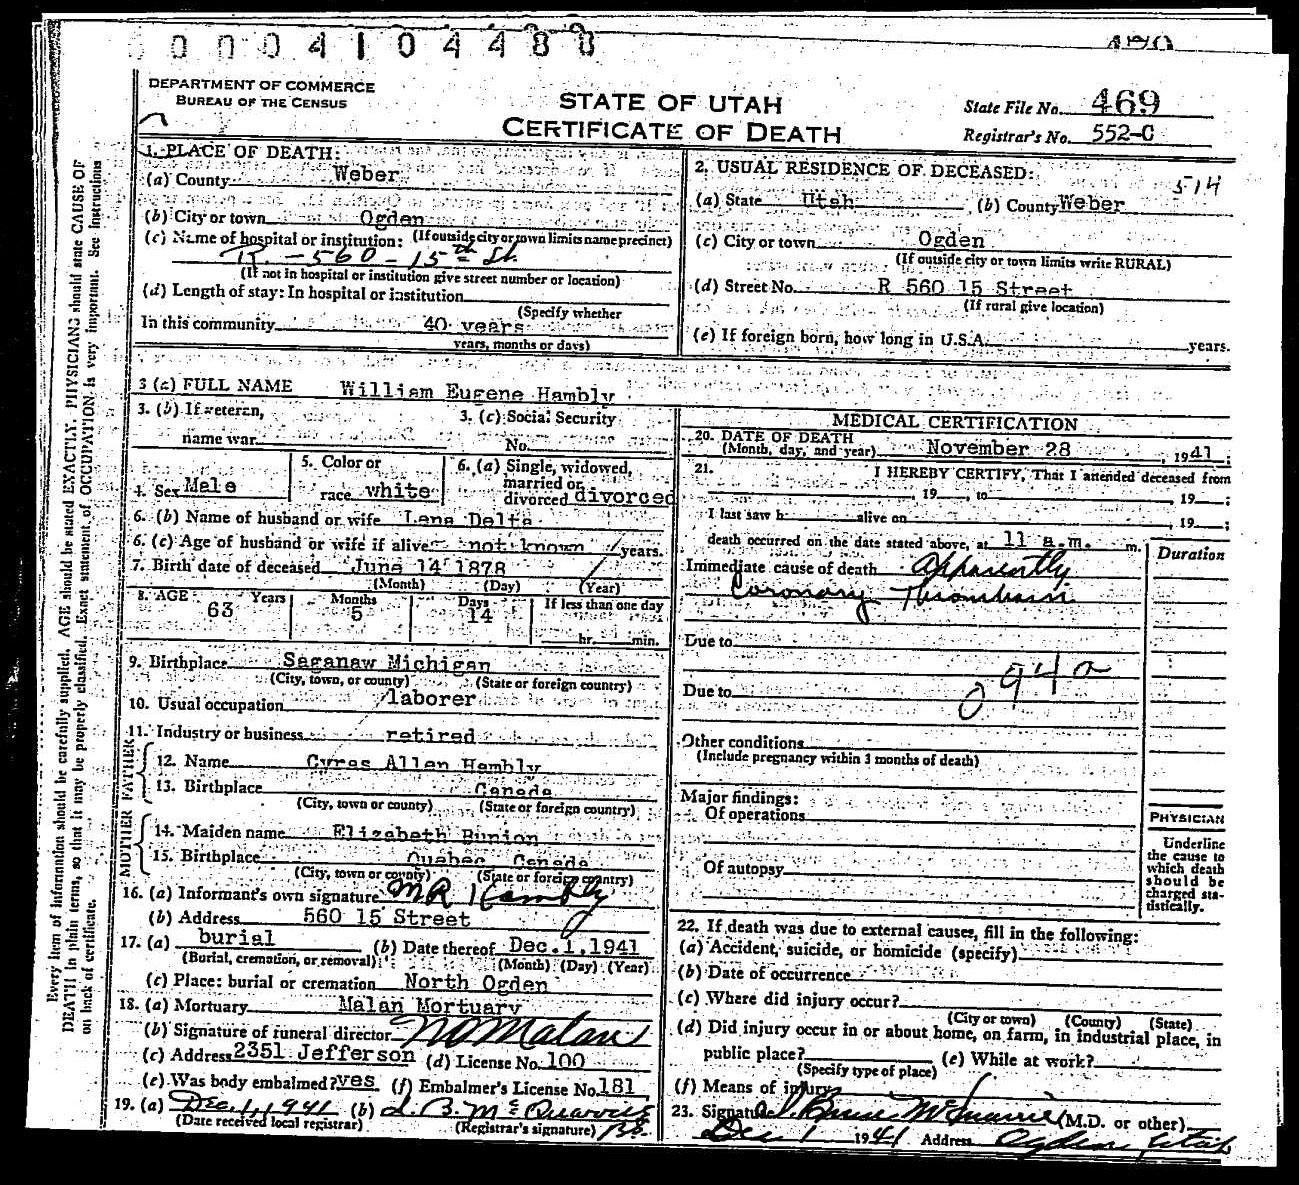 0004104488
DEPARTMENT OF COMMERCE
BUREAU OF THE CENSUS
STATE OF UTAH
CERTIFICATE OF DEATH
State File No. 469
Registrar's No. 552-C
1. PLACE OF DEATH:
(a) County Weber
(b) City or town Ogden
(c) Name of hospital or institution: (If outside city or town limits name precinct)
R. - 560 - 15th St.
(If not in hospital or institution give street number or location)
(d) Length of stay: In hospital or institution
(Specify whether
In this community 40 years
years, months or days)
2. USUAL RESIDENCE OF DECEASED:
514
(a) State Utah (b) County Weber
(c) City or town Ogden
(If outside city or town limits write RURAL)
(d) Street No. R 560 15 Street
(If rural give location)
(e) If foreign born, how long in U.S.A. years.
3 (a) FULL NAME William Eugene Hambly
3. (b) If veteran,
name war
3. (c) Social Security
No.
4. Sex Male
5. Color or
race white
6. (a) Single, widowed,
married or
divorced divorced
6. (b) Name of husband or wife Lena Delta
6. (c) Age of husband or wife if alive not known years.
7. Birth date of deceased June 14 1878
(Month) (Day) (Year)
8. AGE Years Months Days If less than one day
63 5 14
hr. min.
9. Birthplace Saganaw Michigan
(City, town, or county) (State or foreign country)
10. Usual occupation laborer
11. Industry or business retired
FATHER
12. Name Cyras Allen Hambly
13. Birthplace Canada
(City, town or county) (State or foreign country)
MOTHER
14. Maiden name Elizabeth Bunion
15. Birthplace Quebec Canada
(City, town or county) (State or foreign country)
16. (a) Informant's own signature MR Hambly
(b) Address 560 15 Street
17. (a) burial (b) Date thereof Dec. 1, 1941
(Burial, cremation, or removal) (Month) (Day) (Year)
(c) Place: burial or cremation North Ogden
18. (a) Mortuary Malan Mortuary
(b) Signature of funeral director Malan
(c) Address 2351 Jefferson (d) License No. 100
(e) Was body embalmed? yes (f) Embalmer's License No. 181
19. (a) Dec. 1, 1941 (b) J. B. McQuarrie
(Date received local registrar) (Registrar's signature)
MEDICAL CERTIFICATION
20. DATE OF DEATH
(Month, day, and year) November 28, 1941
21. I HEREBY CERTIFY, That I attended deceased from
, 19 , to , 19 ;
I last saw h alive on , 19 ;
death occurred on the date stated above, at 11 a.m. m.
Duration
Immediate cause of death Apparently
Coronary Thrombosis
Due to
94a
Due to
Other conditions
(Include pregnancy within 3 months of death)
Major findings:
Of operations
Of autopsy
PHYSICIAN
Underline
the cause to
which death
should be
charged sta-
tistically.
22. If death was due to external causes, fill in the following:
(a) Accident, suicide, or homicide (specify)
(b) Date of occurrence
(c) Where did injury occur?
(City or town) (County) (State)
(d) Did injury occur in or about home, on farm, in industrial place, in
public place? (e) While at work?
(Specify type of place)
(f) Means of injury
23. Signature J. Bruce McQuarrie (M.D. or other)
Dec 1 1941 Address Ogden, Utah
Every item of information should be carefully supplied. AGE should be stated EXACTLY. PHYSICIANS should state CAUSE OF
DEATH in plain terms, so that it may be properly classified. Exact statement of OCCUPATION is very important. See instructions
on back of certificate.